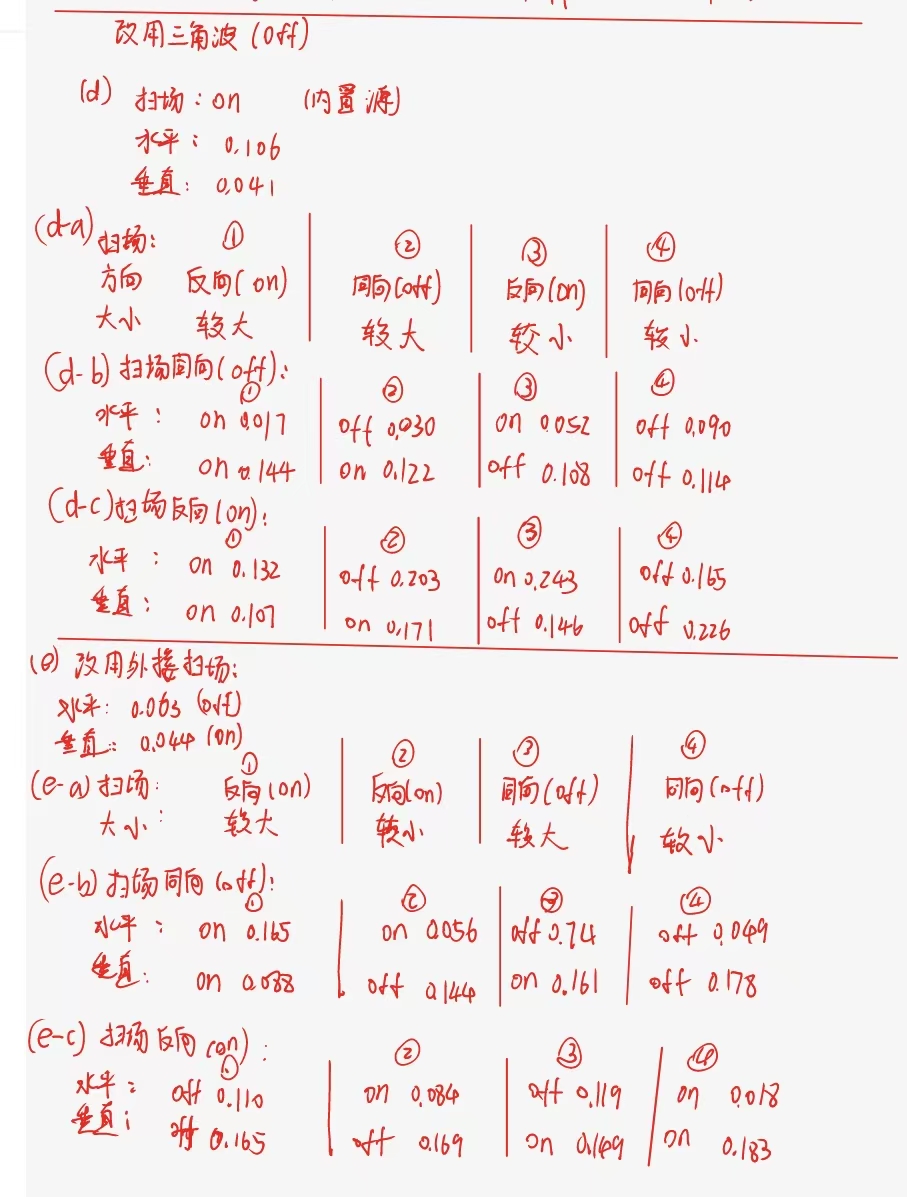 改用三角波 (off)
(d) 扫场：on (内置源)
水平：0.106
垂直：0.041
(d-a) 扫场： ① ② ③ ④
方向 反向(on) 同向(off) 反向(on) 同向(off)
大小 较大 较大 较小 较小
(d-b) 扫场同向(off)：
① ② ③ ④
水平： on 0.017 off 0.030 on 0.052 off 0.090
垂直： on 0.144 on 0.122 off 0.108 off 0.114
(d-c) 扫场反向(on)：
① ② ③ ④
水平： on 0.132 off 0.203 on 0.243 off 0.165
垂直： on 0.107 on 0.171 off 0.146 off 0.226
(e) 改用外接扫场：
水平：0.063 (off)
垂直：0.044 (on)
① ② ③ ④
(e-a) 扫场： 反向(on) 反向(on) 同向(off) 同向(off)
大小： 较大 较小 较大 较小
(e-b) 扫场同向(off)：
① ② ③ ④
水平： on 0.165 on 0.056 off 0.74 off 0.049
垂直： on 0.088 off 0.144 on 0.161 off 0.178
(e-c) 扫场反向(on)：
① ② ③ ④
水平： off 0.110 on 0.084 off 0.119 on 0.018
垂直： off 0.165 off 0.169 on 0.149 on 0.183